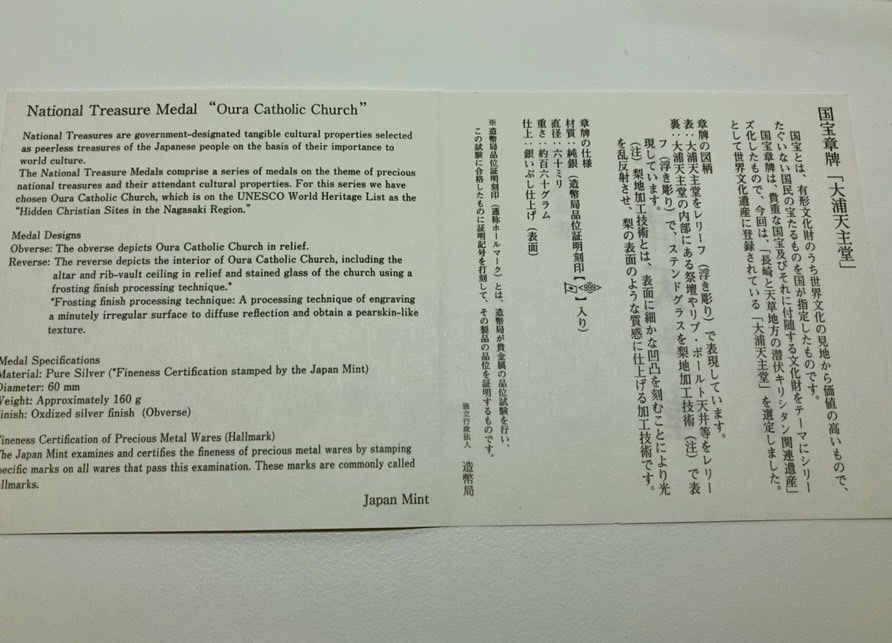 National Treasure Medal “Oura Catholic Church”
National Treasures are government-designated tangible cultural properties selected
as peerless treasures of the Japanese people on the basis of their importance to
world culture.
The National Treasure Medals comprise a series of medals on the theme of precious
national treasures and their attendant cultural properties. For this series we have
chosen Oura Catholic Church, which is on the UNESCO World Heritage List as the
“Hidden Christian Sites in the Nagasaki Region.”
Medal Designs
Obverse: The obverse depicts Oura Catholic Church in relief.
Reverse: The reverse depicts the interior of Oura Catholic Church, including the
altar and rib-vault ceiling in relief and stained glass of the church using a
frosting finish processing technique.*
*Frosting finish processing technique: A processing technique of engraving
a minutely irregular surface to diffuse reflection and obtain a pearskin-like
texture.
Medal Specifications
Material: Pure Silver (*Fineness Certification stamped by the Japan Mint)
Diameter: 60 mm
Weight: Approximately 160 g
inish: Oxdized silver finish (Obverse)
ineness Certification of Precious Metal Wares (Hallmark)
he Japan Mint examines and certifies the fineness of precious metal wares by stamping
ecific marks on all wares that pass this examination. These marks are commonly called
llmarks.
Japan Mint
国宝章牌「大浦天主堂」
国宝とは、有形文化財のうち世界文化の見地から価値の高いもので、
たぐいない国民の宝たるものを国が指定したものです。
国宝章牌は、貴重な国宝及びそれに付随する文化財をテーマにシリー
ズ化したもので、今回は、「長崎と天草地方の潜伏キリシタン関連遺産」
として世界文化遺産に登録されている「大浦天主堂」を選定しました。
章牌の図柄
表：大浦天主堂をレリーフ（浮き彫り）で表現しています。
裏：大浦天主堂の内部にある祭壇やリブ・ボールト天井等をレリー
フ（浮き彫り）で、ステンドグラスを梨地加工技術（注）で表
現しています。
（注）梨地加工技術とは、表面に細かな凹凸を刻むことにより光
を乱反射させ、梨の表面のような質感に仕上げる加工技術です。
章牌の仕様
材質：純銀（造幣局品位証明刻印【】入り）
直径：六十ミリ
重さ：約百六十グラム
仕上：銀いぶし仕上げ（表面）
※造幣局品位証明刻印（通称ホールマーク）とは、造幣局が貴金属の品位試験を行い、
この試験に合格したものに証明記号を打刻して、その製品の品位を証明するものです。
独立行政法人 造幣局